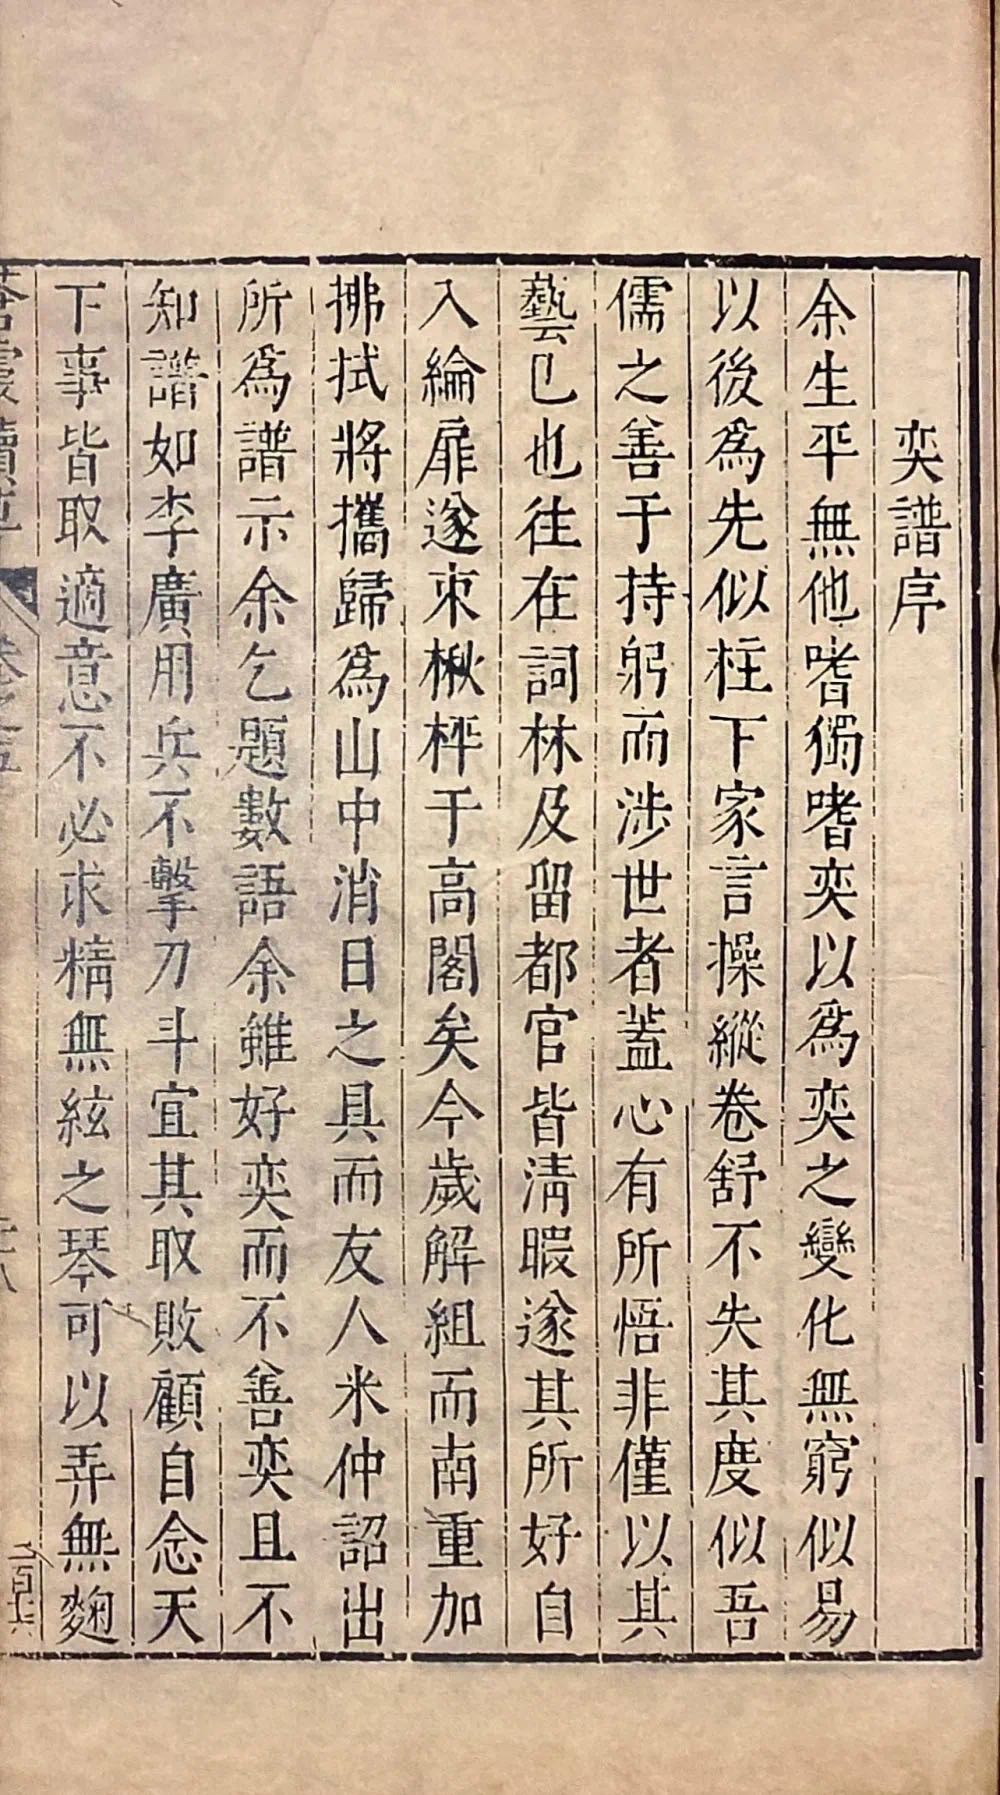 奕譜序
余生平無他嗜獨嗜奕以爲奕之變化無窮似易
以後爲先似柱下家言操縱卷舒不失其度似吾
儒之善于持躬而涉世者蓋心有所悟非僅以其
藝已也往在詞林及留都官皆淸暇遂其所好自
入綸扉遂束楸枰于高閣矣今歲解組而南重加
拂拭將攜歸爲山中消日之具而友人米仲詔出
所爲譜示余乞題數語余雖好奕而不善奕且不
知譜如李廣用兵不擊刀斗宜其取敗顧自念天
下事皆取適意不必求精無絃之琴可以弄無麴
蒼霞續草 卷之五